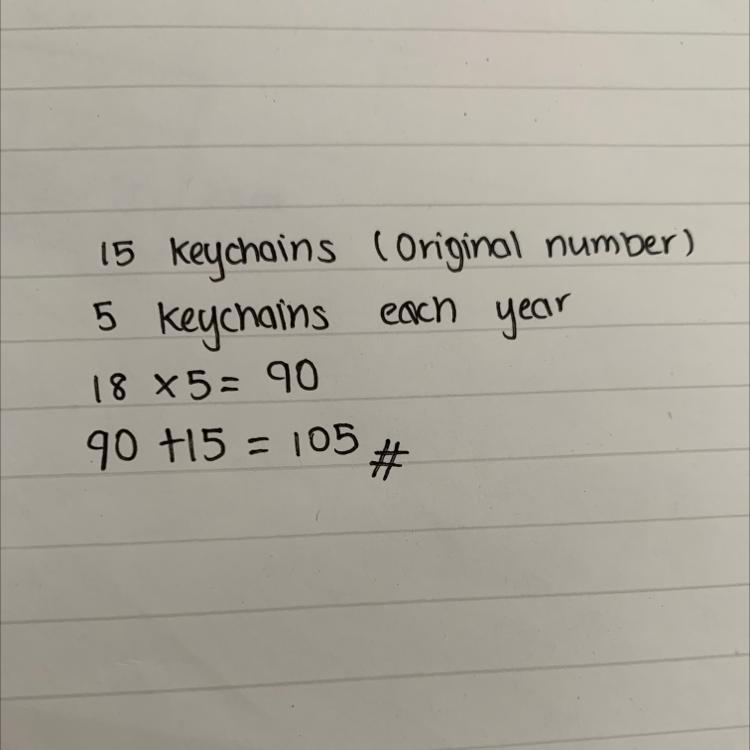 15 keychains (Original number)
5 keychains each year
18 x 5 = 90
90 +15 = 105 #